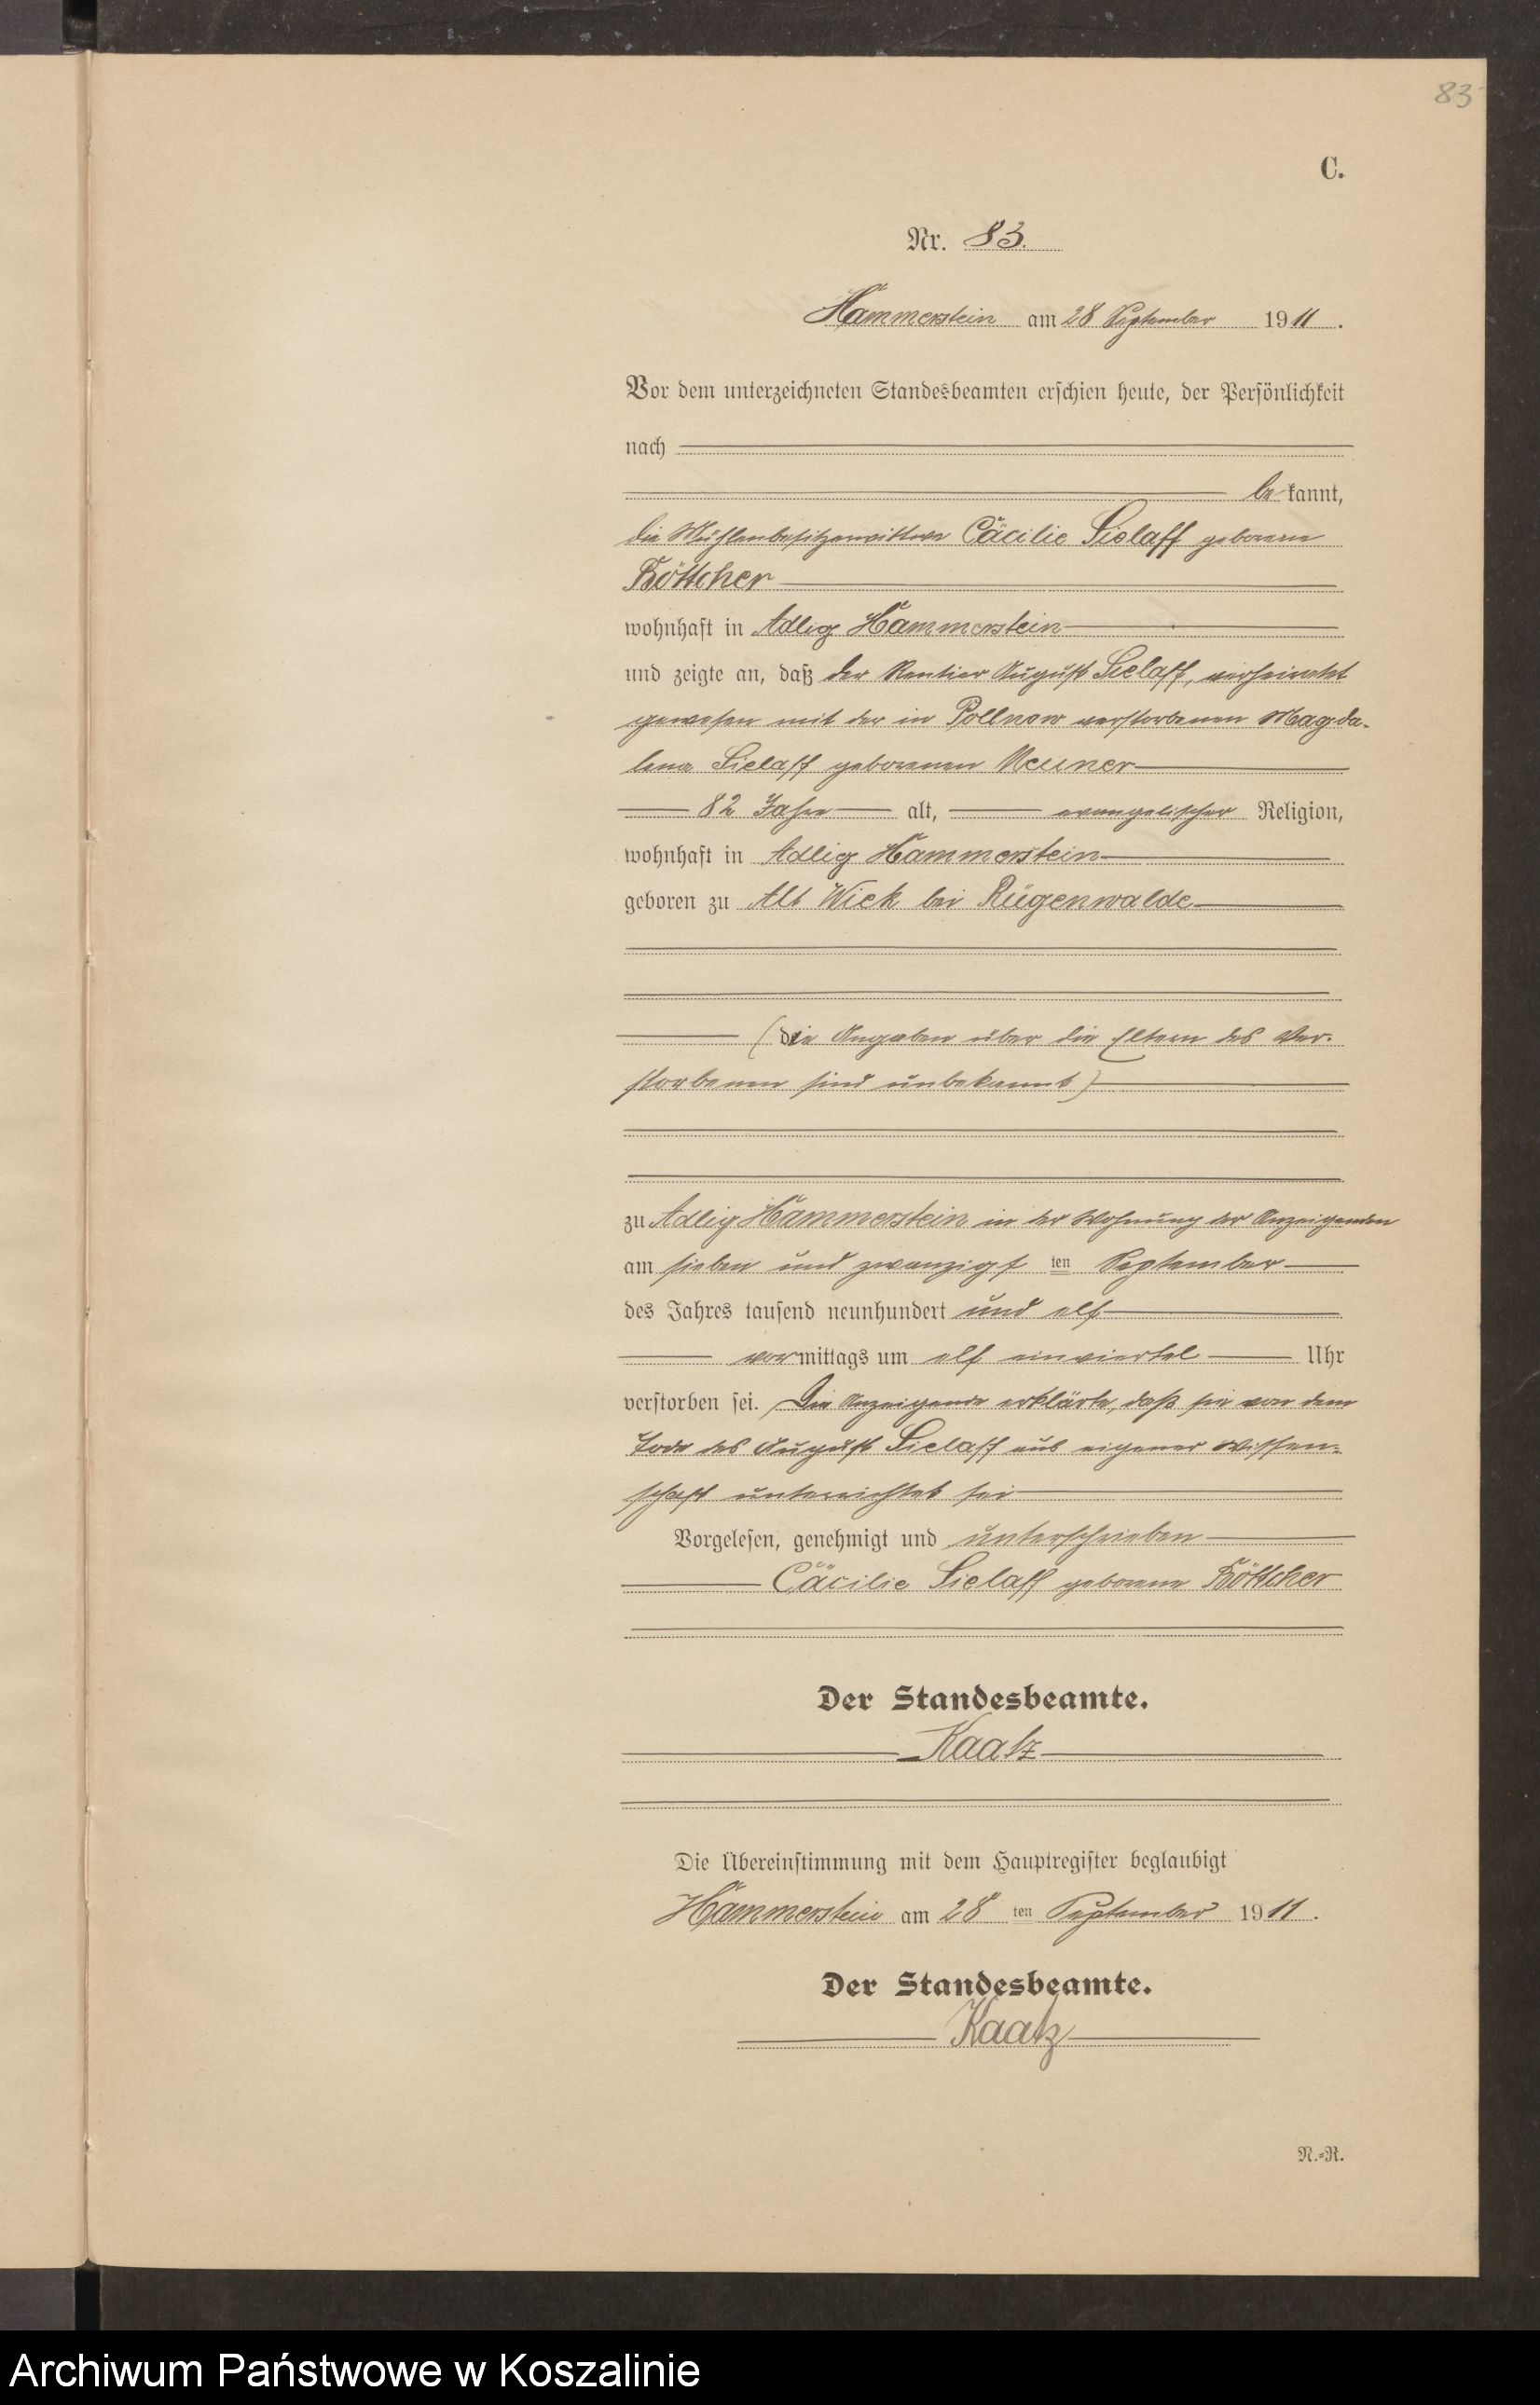 83
C.
Nr. 83.
Hammerstein am 28 September 1911.
Vor dem unterzeichneten Standesbeamten erschien heute, der Persönlichkeit
nach
be kannt,
die Mühlenbesitzerwittwe Cäcilie Sielaff geborene
Böttcher
wohnhaft in Adlig Hammerstein
und zeigte an, daß der Rentier August Sielaff, verheirathet
gewesen mit der in Pollnow verstorbenen Magda-
lena Sielaff geborenen Neuner
82 Jahre alt, evangelischer Religion,
wohnhaft in Adlig Hammerstein
geboren zu Alt Wiek bei Rügenwalde
(die Angaben über die Eltern des Ver-
storbenen sind unbekannt)
zu Adlig Hammerstein in der Wohnung der Anzeigenden
am sieben und zwanzigs ten September
des Jahres tausend neunhundert und elf
vor mittags um elf einviertel Uhr
verstorben sei. Die Anzeigende erklärte, daß sie von dem
Tode des August Sielaff aus eigener Wissen-
schaft unterrichtet sei
Vorgelesen, genehmigt und unterschrieben
Cäcilie Sielaff geborene Böttcher
Der Standesbeamte.
Kaatz
Die Übereinstimmung mit dem Hauptregister beglaubigt
Hammerstein am 28 ten September 1911.
Der Standesbeamte.
Kaatz
N.-R.
Archiwum Państwowe w Koszalinie